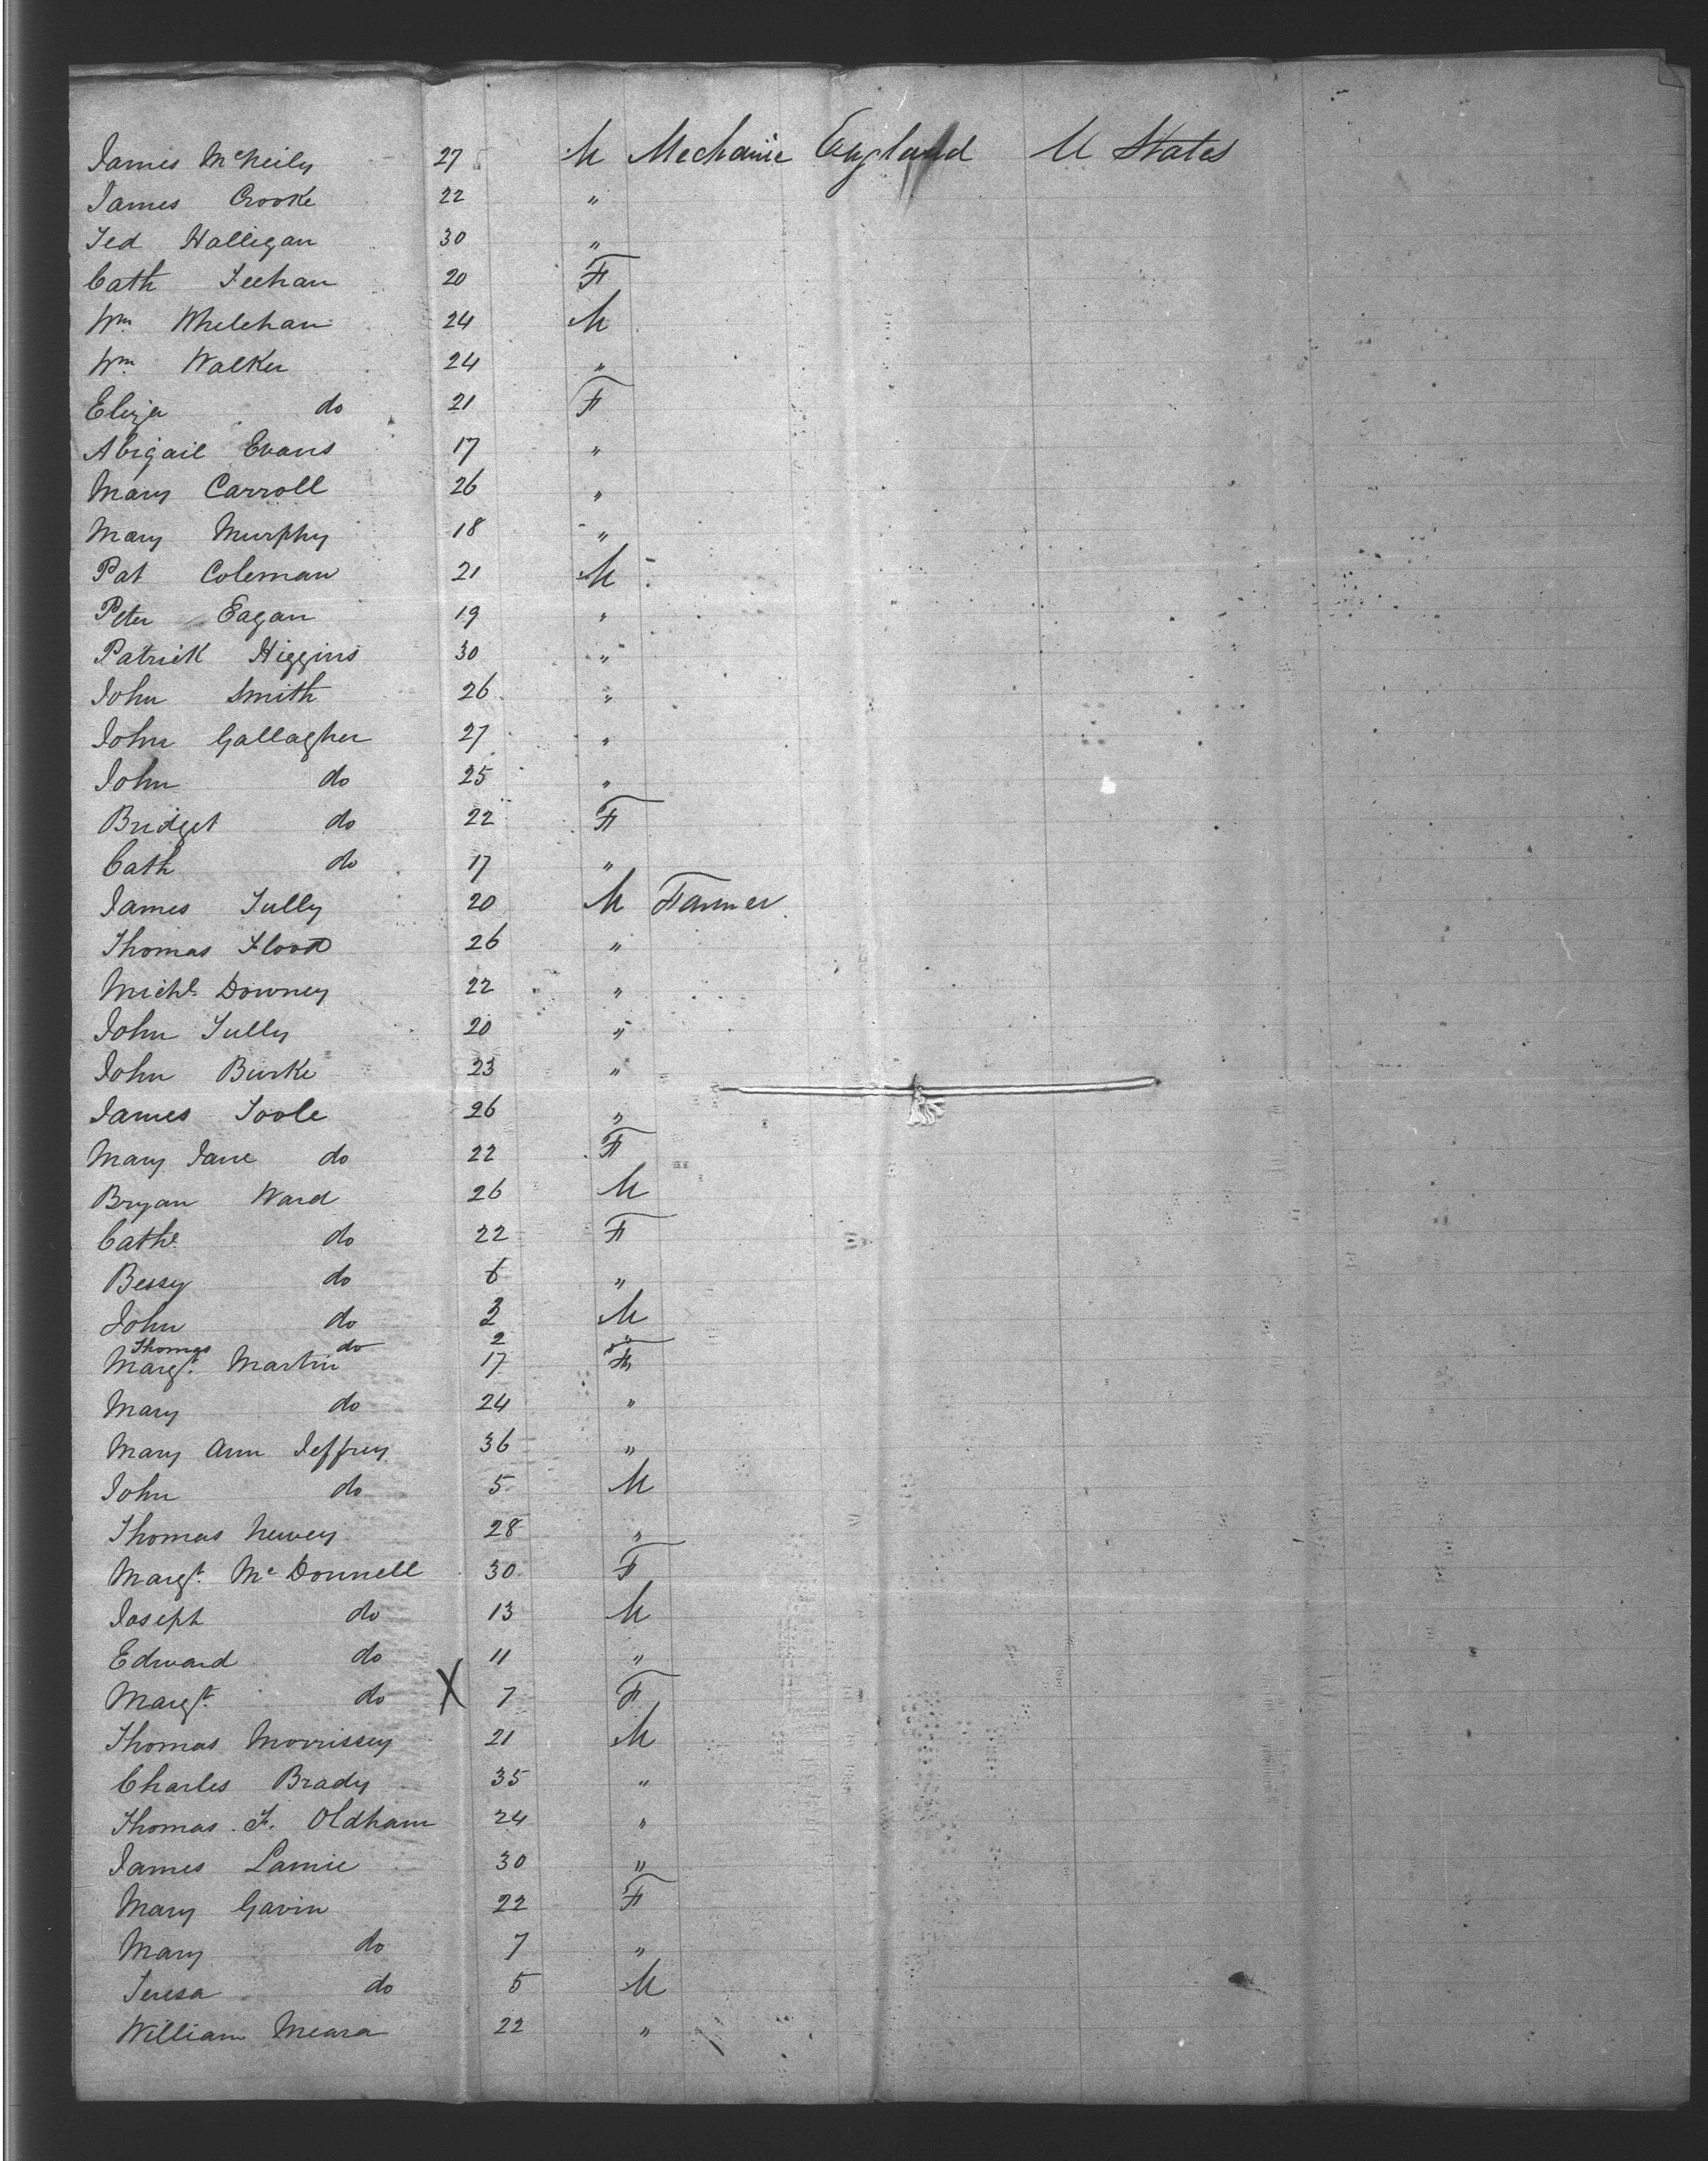 James McNeily 27 M Mechanic England U States
James Crooke 22 "
Ted Halligan 30 "
Cath Feehan 20 F
Wm Whelehan 24 M
Wm Walker 24 "
Eliza do 21 F
Abigail Evans 17 "
Mary Carroll 26 "
Mary Murphy 18 "
Pat Coleman 21 M
Peter Eagan 19 "
Patrick Higgins 30 "
John Smith 26 "
John Gallagher 27 "
John do 25 "
Bridget do 22 F
Cath do 17 "
James Tully 20 M Farmer
Thomas Flood 26 "
Michl Downey 22 "
John Tully 20 "
John Burke 23 "
James Toole 26 "
Mary Jane do 22 F
Bryan Ward 26 M
Cathe do 22 F
Bessy do 6 "
John do 3 M
Thomas do 2 "
Margt. Martin 17 F
Mary do 24 "
Mary Ann Jeffrey 36 "
John do 5 M
Thomas Newey 28 "
Margt. McDonnell 30 F
Joseph do 13 M
Edward do 11 "
Margt. do X 7 F
Thomas Morrissey 21 M
Charles Brady 35 "
Thomas F. Oldham 24 "
James Lamie 30 "
Mary Gavin 22 F
Mary do 7 "
Teresa do 5 M
William Meara 22 "